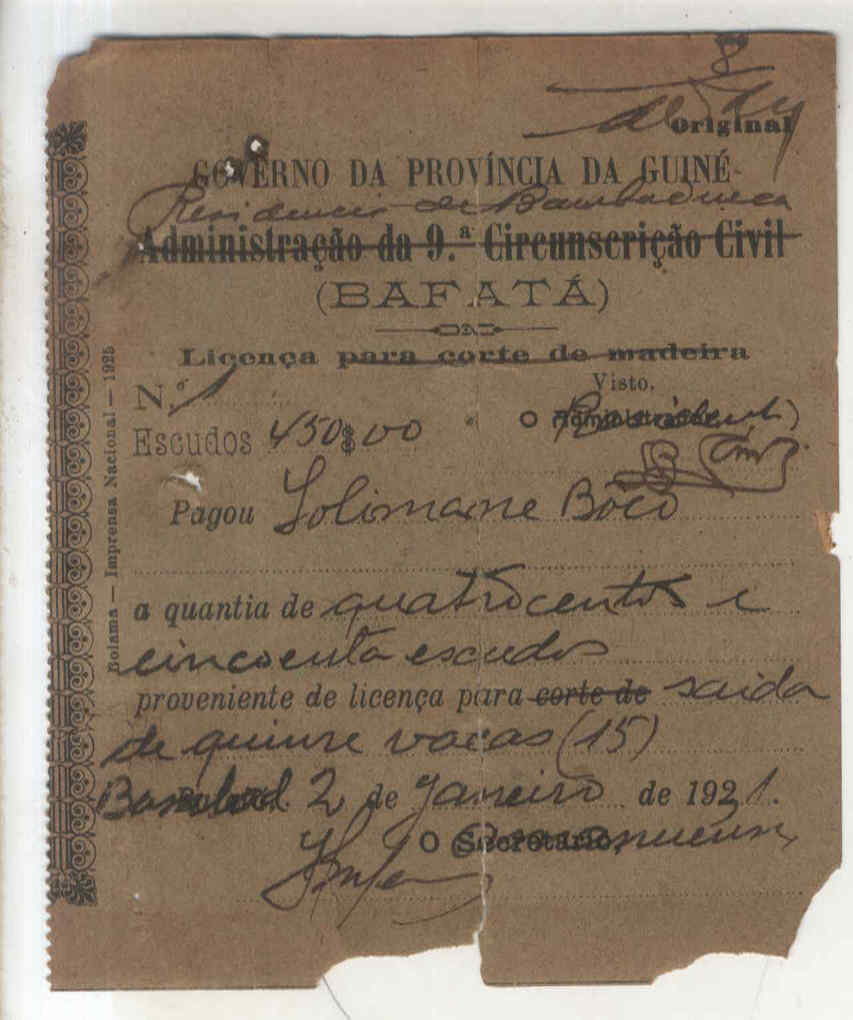 Original
GOVERNO DA PROVÍNCIA DA GUINÉ
Residencia de Bambadinca
Administração da 9.ª Circunscrição Civil
(BAFATÁ)
Licença para corte de madeira
N.º 1
Visto.
Escudos 450$00
O Administrador
Pagou Solimane Bóco
a quantia de quatrocentos e
cincoenta escudos
proveniente de licença para corte de saida
de quinze vacas (15)
2 de Janeiro de 192
O Secretario,
Bolama — Imprensa Nacional — 1925